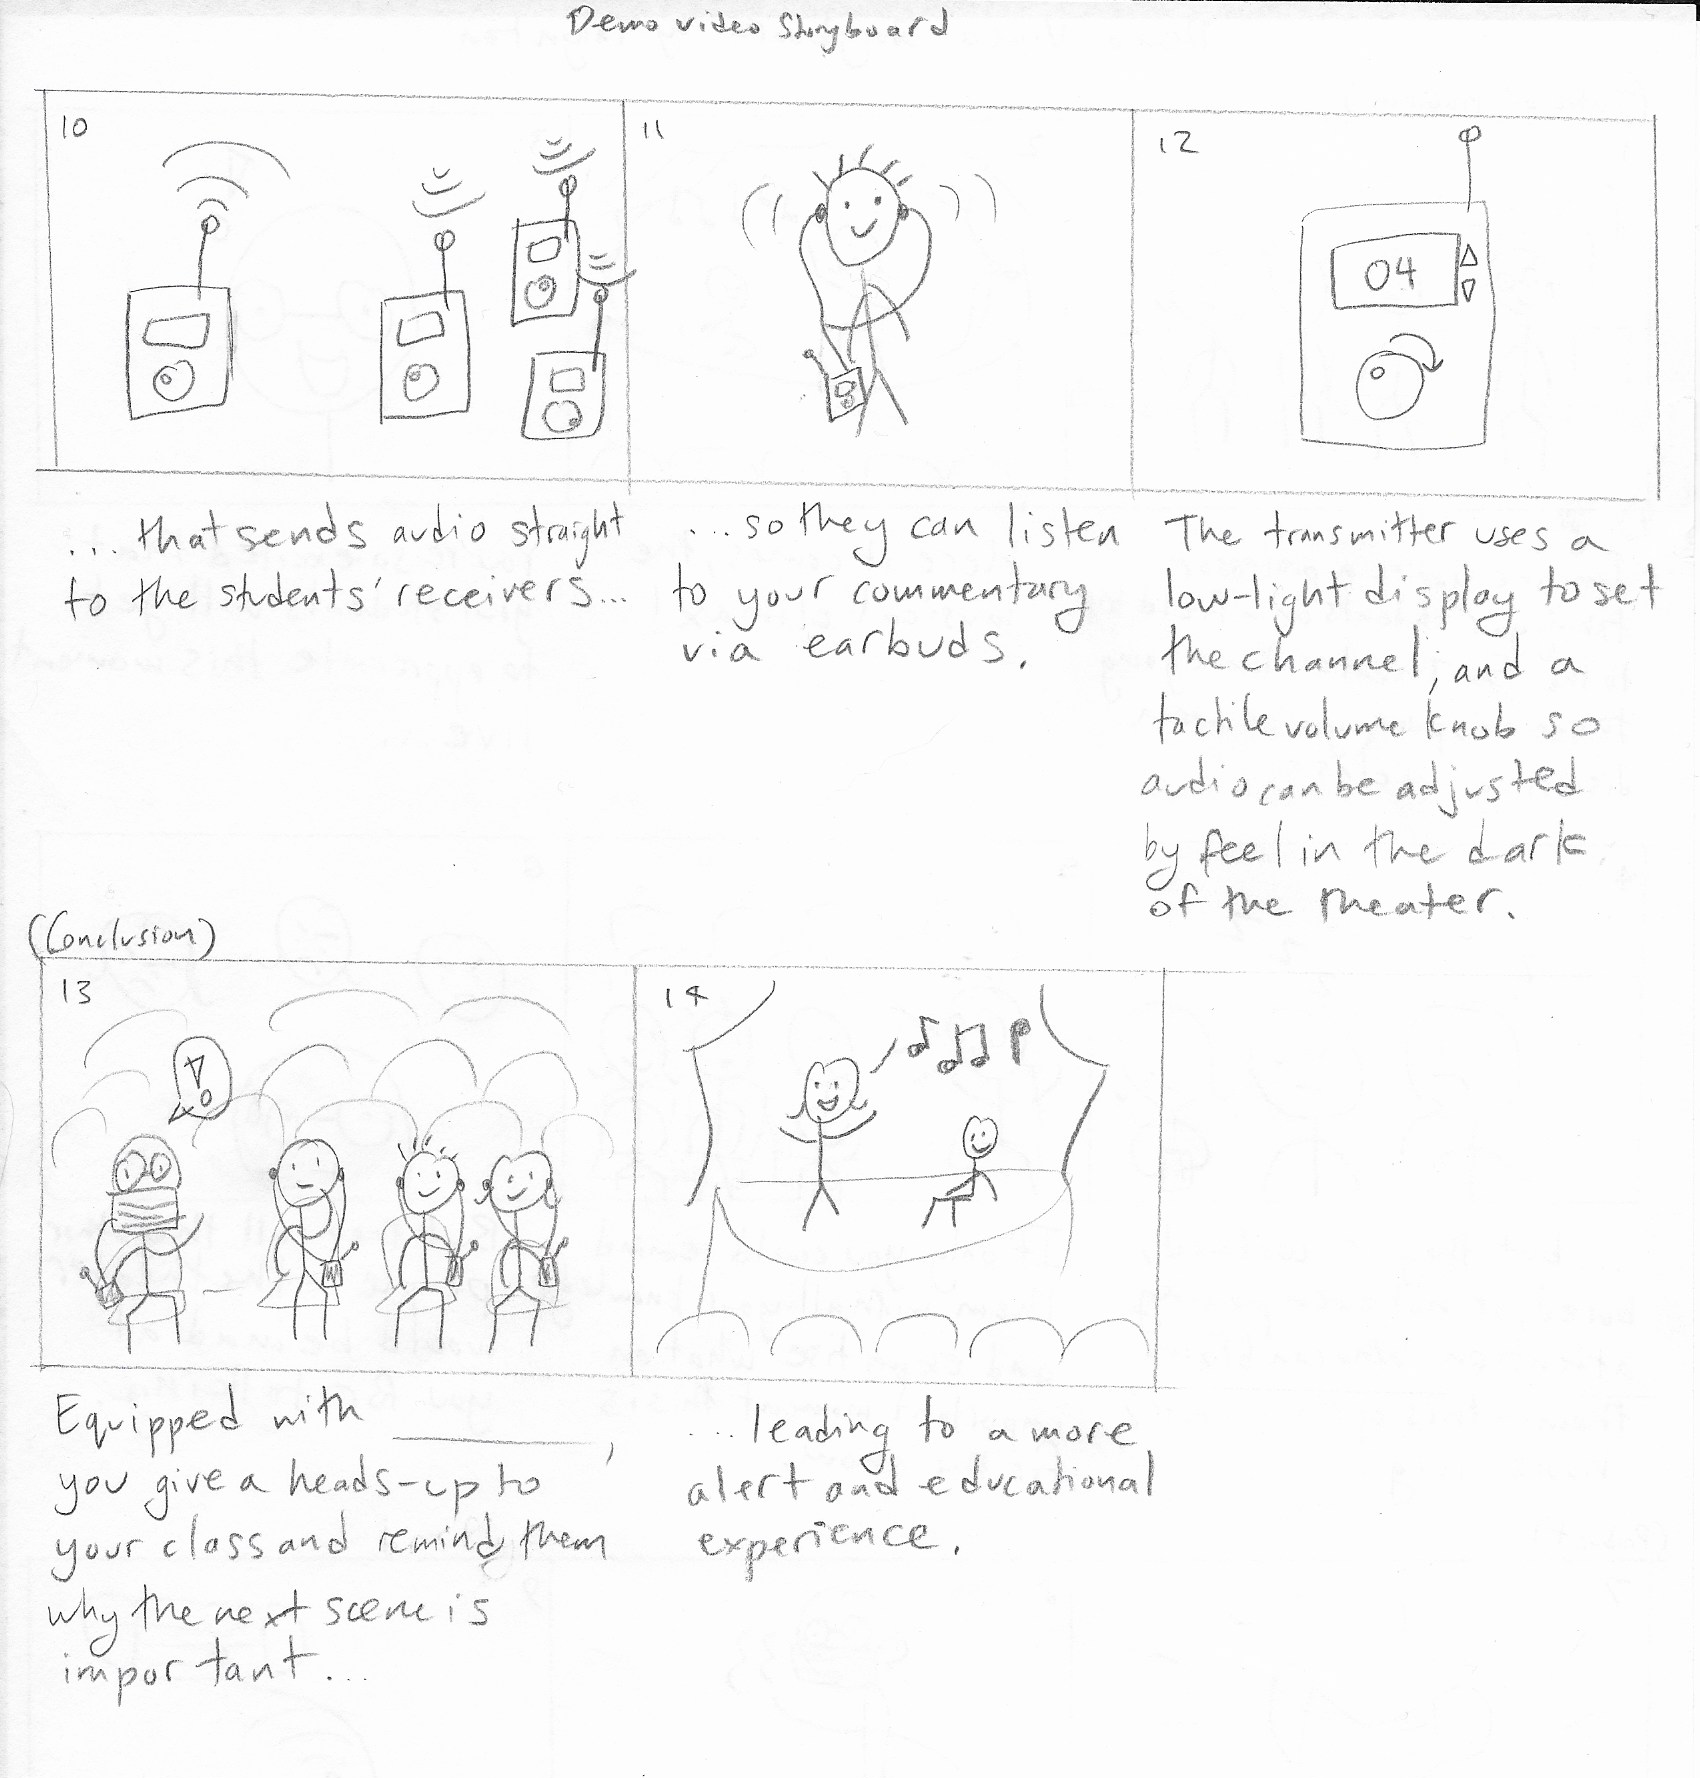 Demo video Storyboard
10
... that sends audio straight
to the students' receivers...
11
...so they can listen
to your commentary
via earbuds.
12
04
The transmitter uses a
low-light display to set
the channel, and a
tactile volume knob so
audio can be adjusted
by feel in the dark
of the theater.
(Conclusion)
13
!
Equipped with ________,
you give a heads-up to
your class and remind them
why the next scene is
important...
14
...leading to a more
alert and educational
experience.